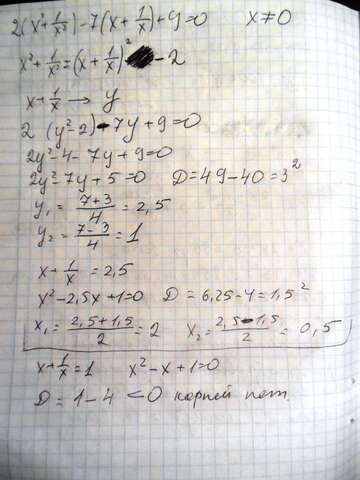 2(x²+1/x²)-7(x+1/x)+9=0 x≠0
x²+1/x²=(x+1/x)²-2
x+1/x → y
2 (y²-2)-7y+9=0
2y²-4-7y+9=0
2y²-7y+5=0 D=49-40=3²
y₁=(7+3)/4=2,5
y₂=(7-3)/4=1
x+1/x=2,5
x²-2,5x+1=0 D=6,25-4=1,5²
x₁=(2,5+1,5)/2=2 x₂=(2,5-1,5)/2=0,5
x+1/x=1 x²-x+1=0
D=1-4<0 корней нет.